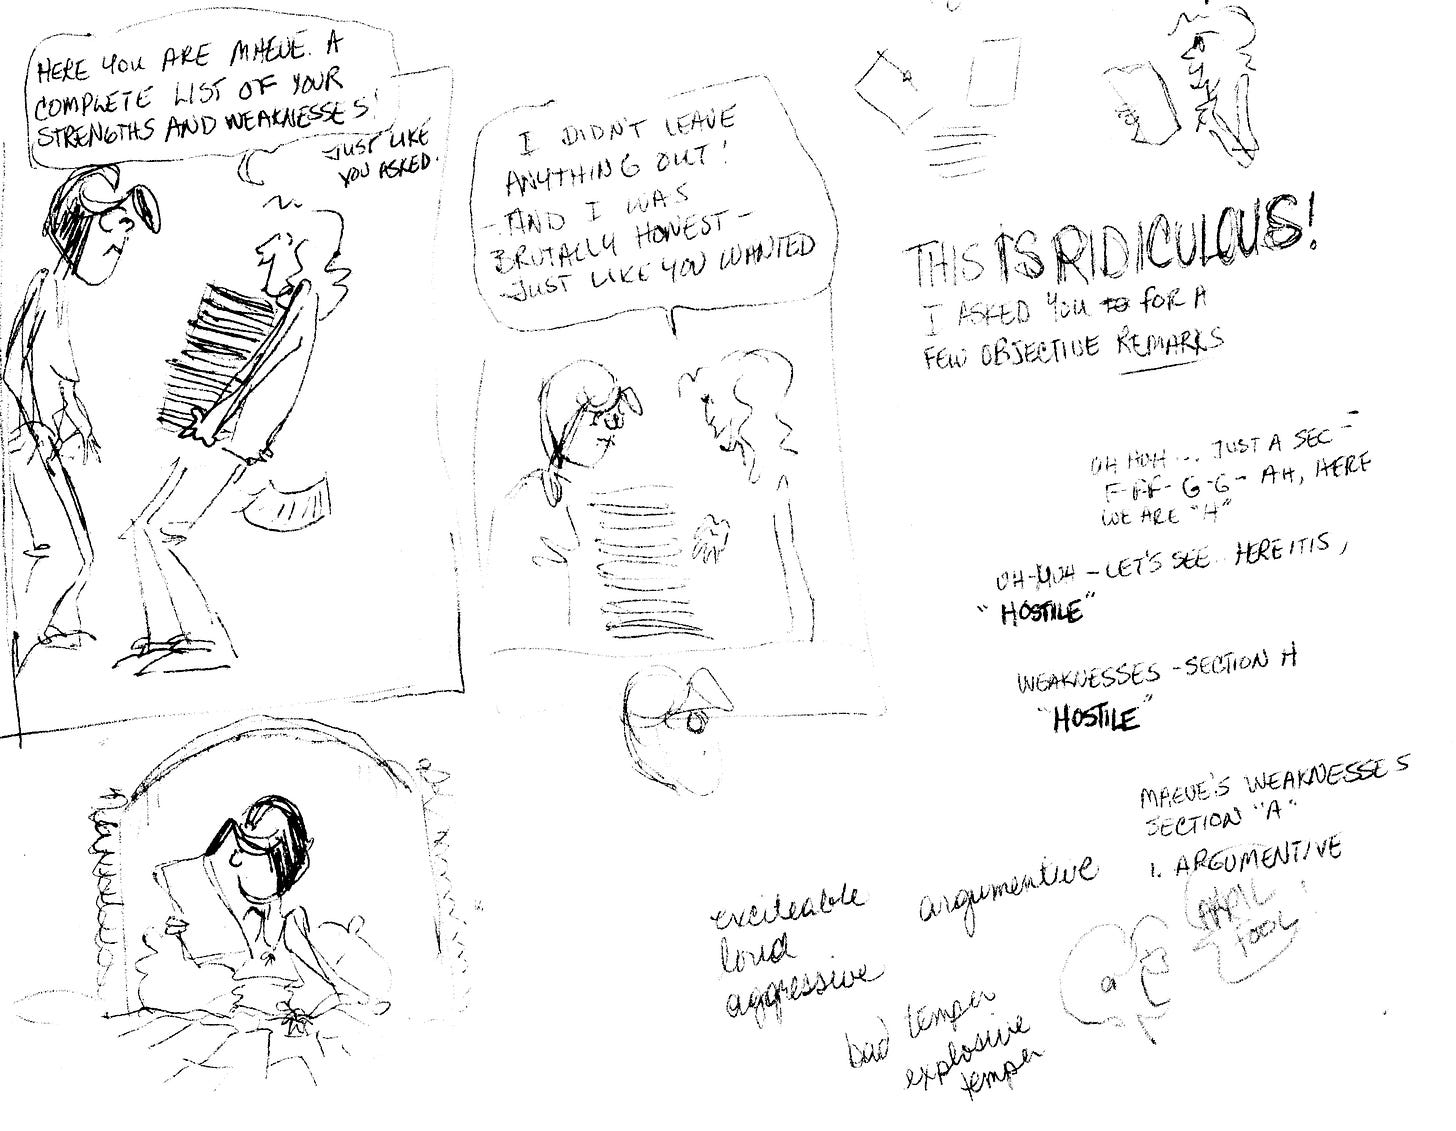 HERE YOU ARE MAEVE. A
COMPLETE LIST OF YOUR
STRENGTHS AND WEAKNESSES!
JUST LIKE
YOU ASKED.
I DIDN'T LEAVE
ANYTHING OUT!
- AND I WAS
BRUTALLY HONEST -
- JUST LIKE YOU WANTED
THIS IS RIDICULOUS!
I ASKED YOU FOR A
FEW OBJECTIVE REMARKS
UH HUH... JUST A SEC -
F-FF- G-G- AH, HERE
WE ARE "H"
UH-HUH - LET'S SEE.. HERE IT IS,
"HOSTILE"
WEAKNESSES - SECTION H
"HOSTILE"
MAEVE'S WEAKNESSES
SECTION "A"
1. ARGUMENTIVE
exciteable
loud
aggressive
argumentive
bad temper
explosive
temper
APRIL
FOOL!